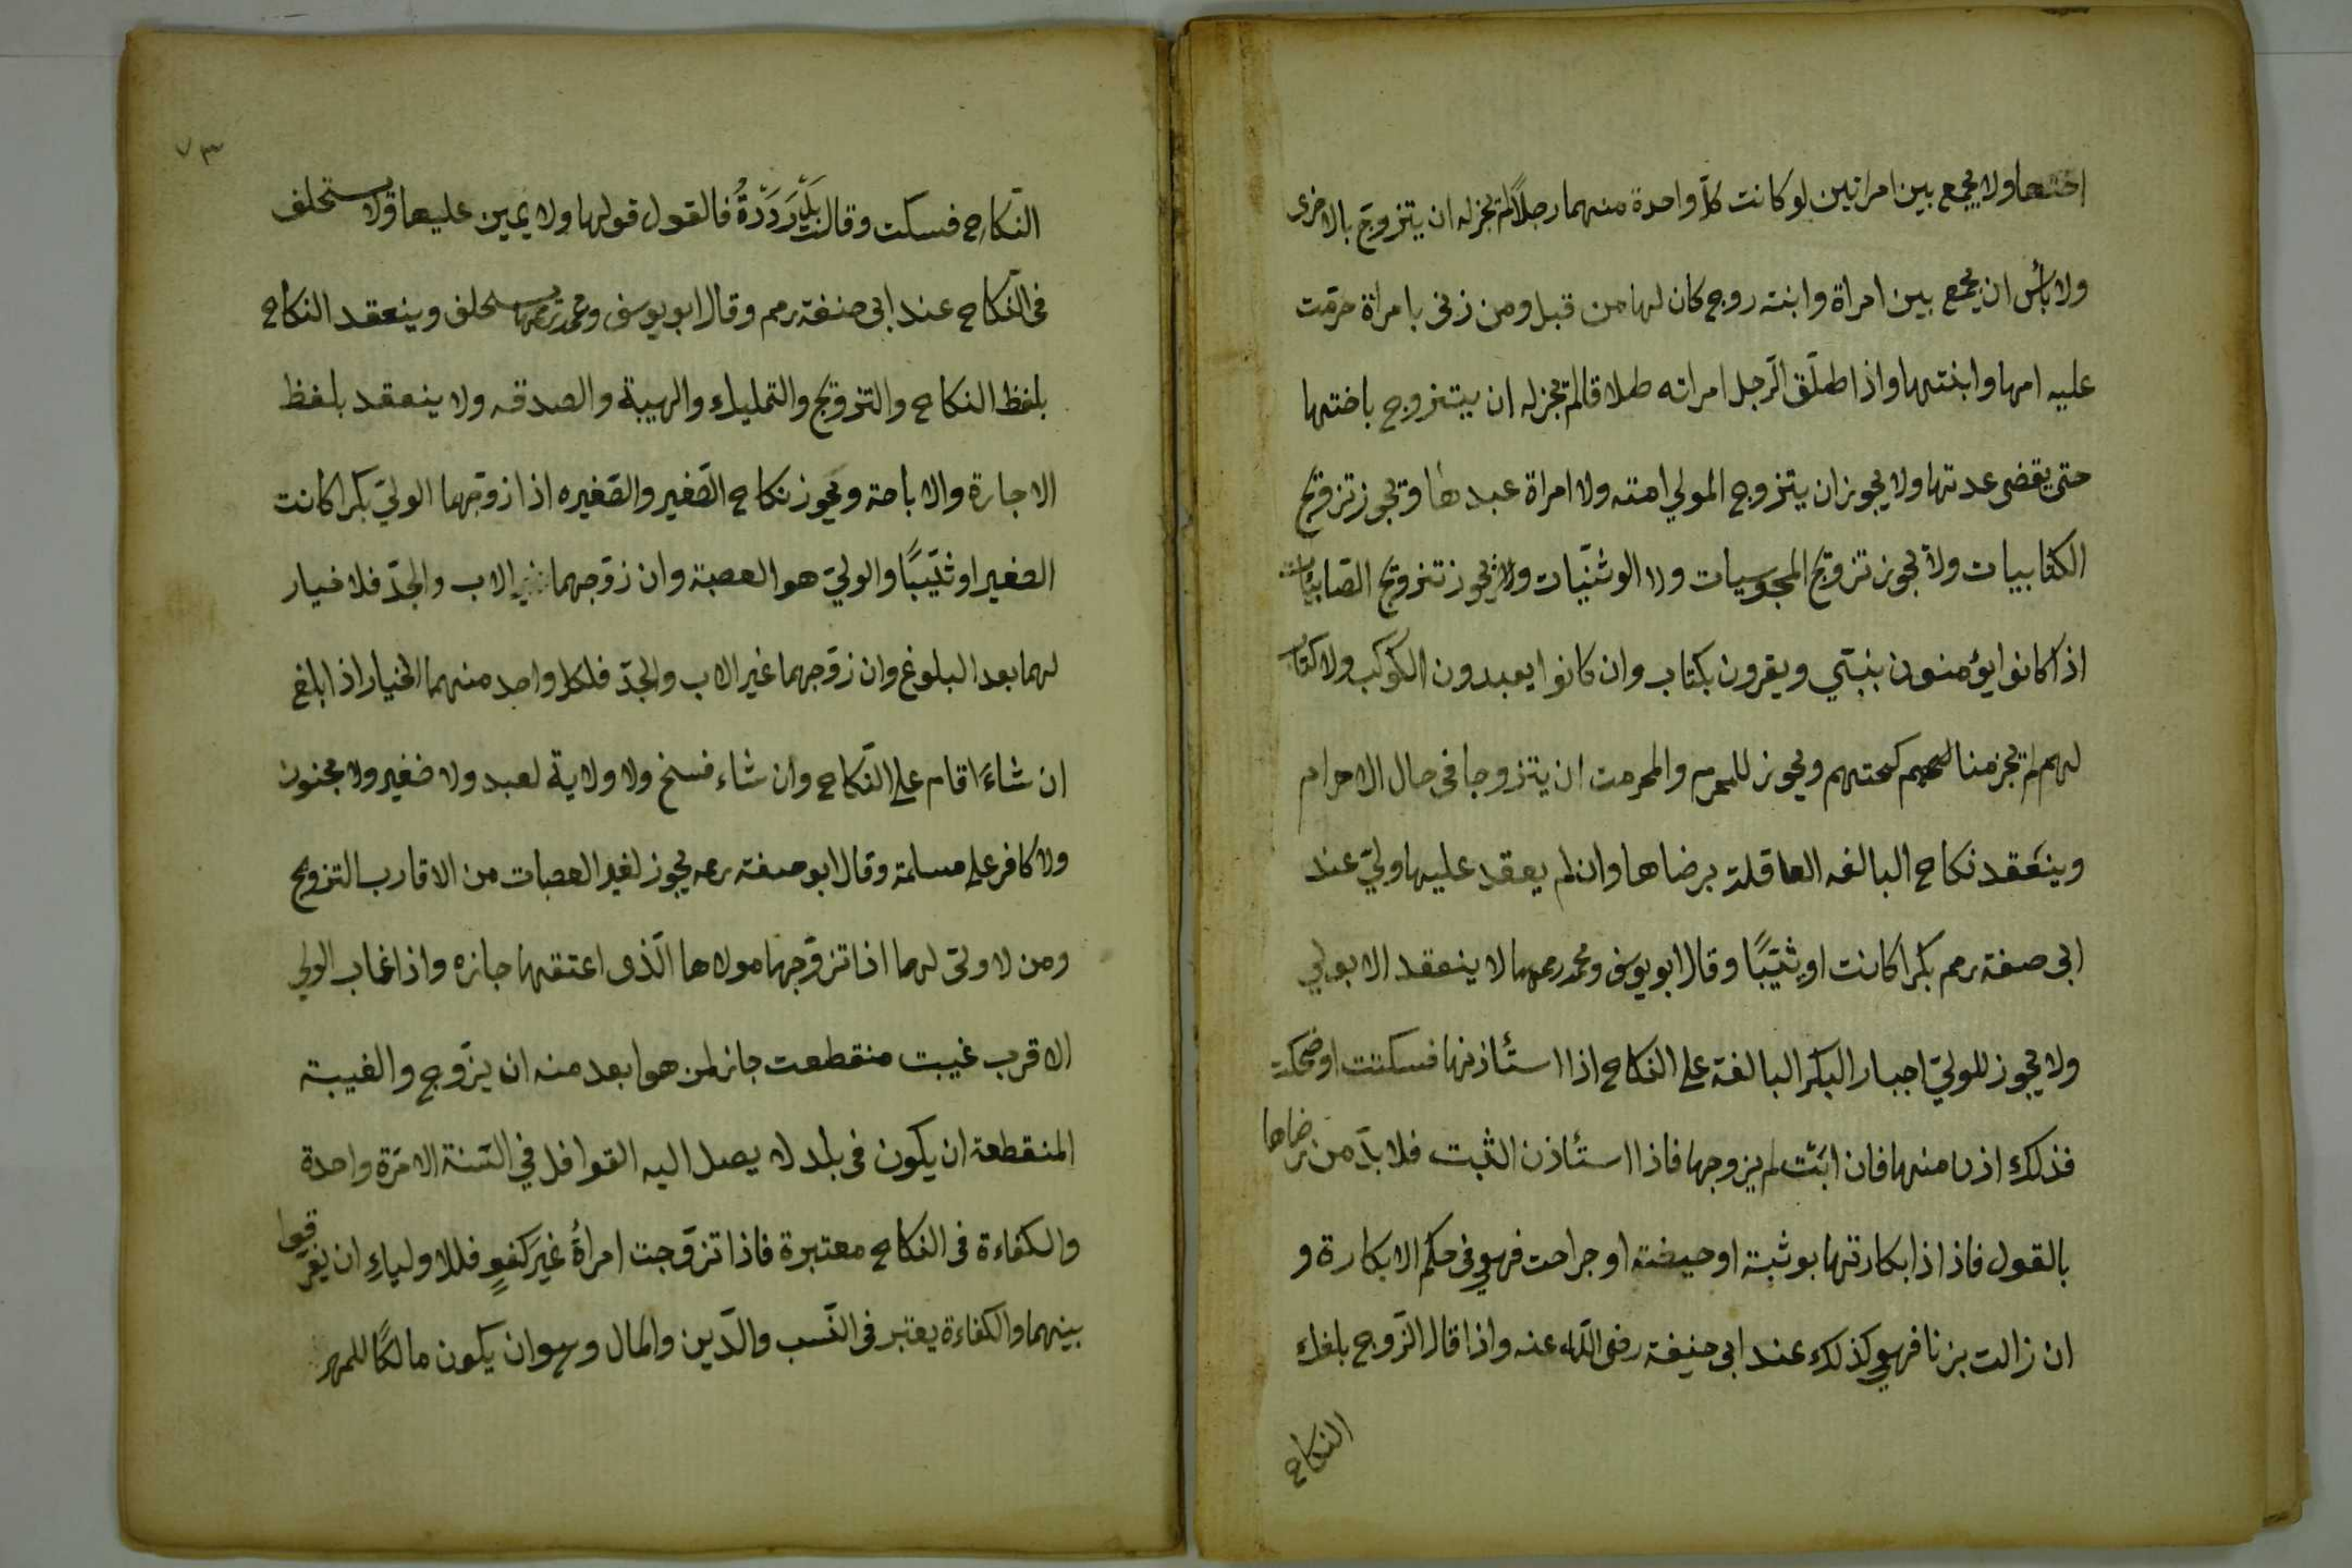 اختها ولا يجمع بين امراتين لو كانت كلّ واحدة منهما رجلاً لم تجز له ان يتزوّج بالاخرى
ولا بأس ان يجمع بين امراة وابنته زوج كان لها من قبل ومن زنى بامراة حرّمت
عليه امها وابنتها واذا طلّق الرّجل امراته طلاقا لم تجز له ان يتزوج باختها
حتى يقضى عدتها ولا يجوز ان يتزوج المولي امته ولا امراة عبدها ويجوز تزويج
الكتابيات ولا تجوز تزويج المجوسيات ولا الوثنيّات ويجوز تزويج الصّابيات
اذا كانوا يؤمنون بنبيّ ويقرون بكتاب وان كانوا يعبدون الكوكب ولا كتاب
لهم لم تجز مناكحتهم ويجوز للمحرم والمحرمت ان يتزوجا فى حال الاحرام
وينعقد نكاح البالغه العاقلة برضاها وان لم يعقد عليها وليّ عند
ابى حنيفة رحمه بكرا كانت او ثيّبًا وقال ابو يوسف ومحمد رحمهما لا ينعقد الا بولي
ولا يجوز للوليّ اجبار البكر البالغة على النكاح اذا استأذنها فسكتت او ضحكت
فذلك اذن منها فان ابت لم يزوجها فاذا استأذن الثيب فلا بدّ من رضاها
بالقول فاذا زالت بكارتها بوثبة او حيضة او جراحت فهي فى حكم الابكارة و
ان زالت بزنا فهي كذلك عند ابى حنيفة رضى اللّه عنه واذا قال الزّوج بلغك
النكاح
٧٣
النكاح فسكت وقالت بل رددّة فالقول قولها ولا يمين عليها ولا يستحلف
فى النكاح عند ابى حنفة رحمه وقال ابو يوسف ومحمد رحمهما يستحلف وينعقد النكاح
بلفظ النكاح والتزويج والتمليك والهبة والصدقه ولا ينعقد بلفظ
الاجارة والاباحة ويجوز نكاح الصّغير والصّغيره اذا زوّجهما الوليّ بكرا كانت
الصغير او ثيّبًا والوليّ هو العصبة وان زوّجهما الاب والجدّ فلا خيار
لهما بعد البلوغ وان زوّجهما غير الاب والجدّ فلكل واحد منهما الخيار اذا بلغ
ان شاءَ اقام على النّكاح وان شاء فسخ ولا ولاية لعبد ولا صغير ولا مجنون
ولا كافر على مسلمة وقال ابو حنيفة رحمه يجوز لغير العصبات من الاقارب التزويج
ومن لا وليّ لهما اذا تزوّجها مولاها الّذى اعتقها جازه واذا غاب الولي
الاقرب غيبت منقطعت جاز لمن هو ابعد منه ان يزّوج والغيبة
المنقطعة ان يكون فى بلد لا يصل اليه القوافل في السّنة الا مرّة واحدة
والكفاءة فى النكاح معتبرة فاذا تزوّجت امرأة غيَر كفوٍ فللاولياءِ ان يفرقوا
بينهما والكفاءة يعتبر فى النّسب والدّين والمال وهو ان يكون مالكًا للمهر